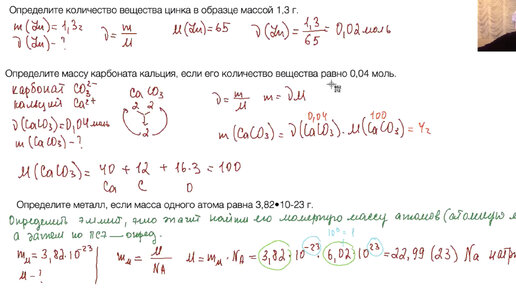 Определите количество вещества цинка в образце массой 1,3 г.
m(Zn)=1,3г ν=m/M M(Zn)=65 ν(Zn)=1,3/65=0,02моль
ν(Zn)-?
Определите массу карбоната кальция, если его количество вещества равно 0,04 моль.
карбонат CO₃²⁻ CaCO₃
кальций Ca²⁺ 2 2 ν=m/M m=νM
2
ν(CaCO₃)=0,04моль 0,04 100
m(CaCO₃)-? m(CaCO₃)=ν(CaCO₃)·M(CaCO₃)=4г
M(CaCO₃)=40+12+16·3=100
Ca C O
Определите металл, если масса одного атома равна 3,82•10-23 г.
Определить элемент, это значит найти его молярную массу атомов (атомную м
а затем по ПСЭ — опред. 10⁰=1
mₘ=3,82·10⁻²³ mₘ=M/NA M=mₘ·NA=3,82·10⁻²³·6,02·10²³=22,99(23) Na натр
M-?